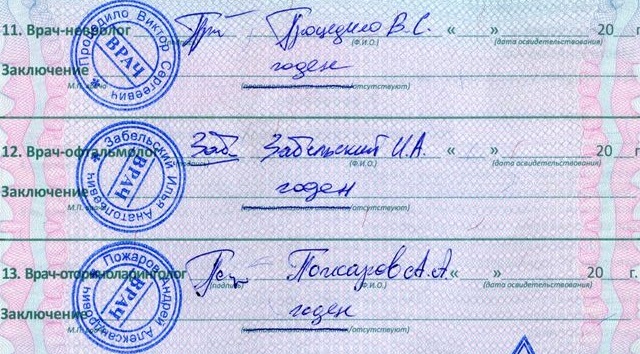 11. Врач-невролог Процедило В.С. « » 20 г.
(Ф.И.О.) (дата освидетельствования)
Процедило Виктор Сергеевич ВРАЧ
Заключение годен
М.П. /отсутствуют)
12. Врач-офтальмолог Заб Забельский И.А. « » 20 г.
(Ф.И.О.) (дата освидетельствования)
Забельский Илья Анатольевич ВРАЧ
Заключение годен
М.П. /отсутствуют)
13. Врач-оториноларинголог Пожаров А.А. « » 20 г.
(подпись) (Ф.И.О.) (дата освидетельствования)
Пожаров Андрей Александрович ВРАЧ
Заключение годен
М.П. /отсутствуют)